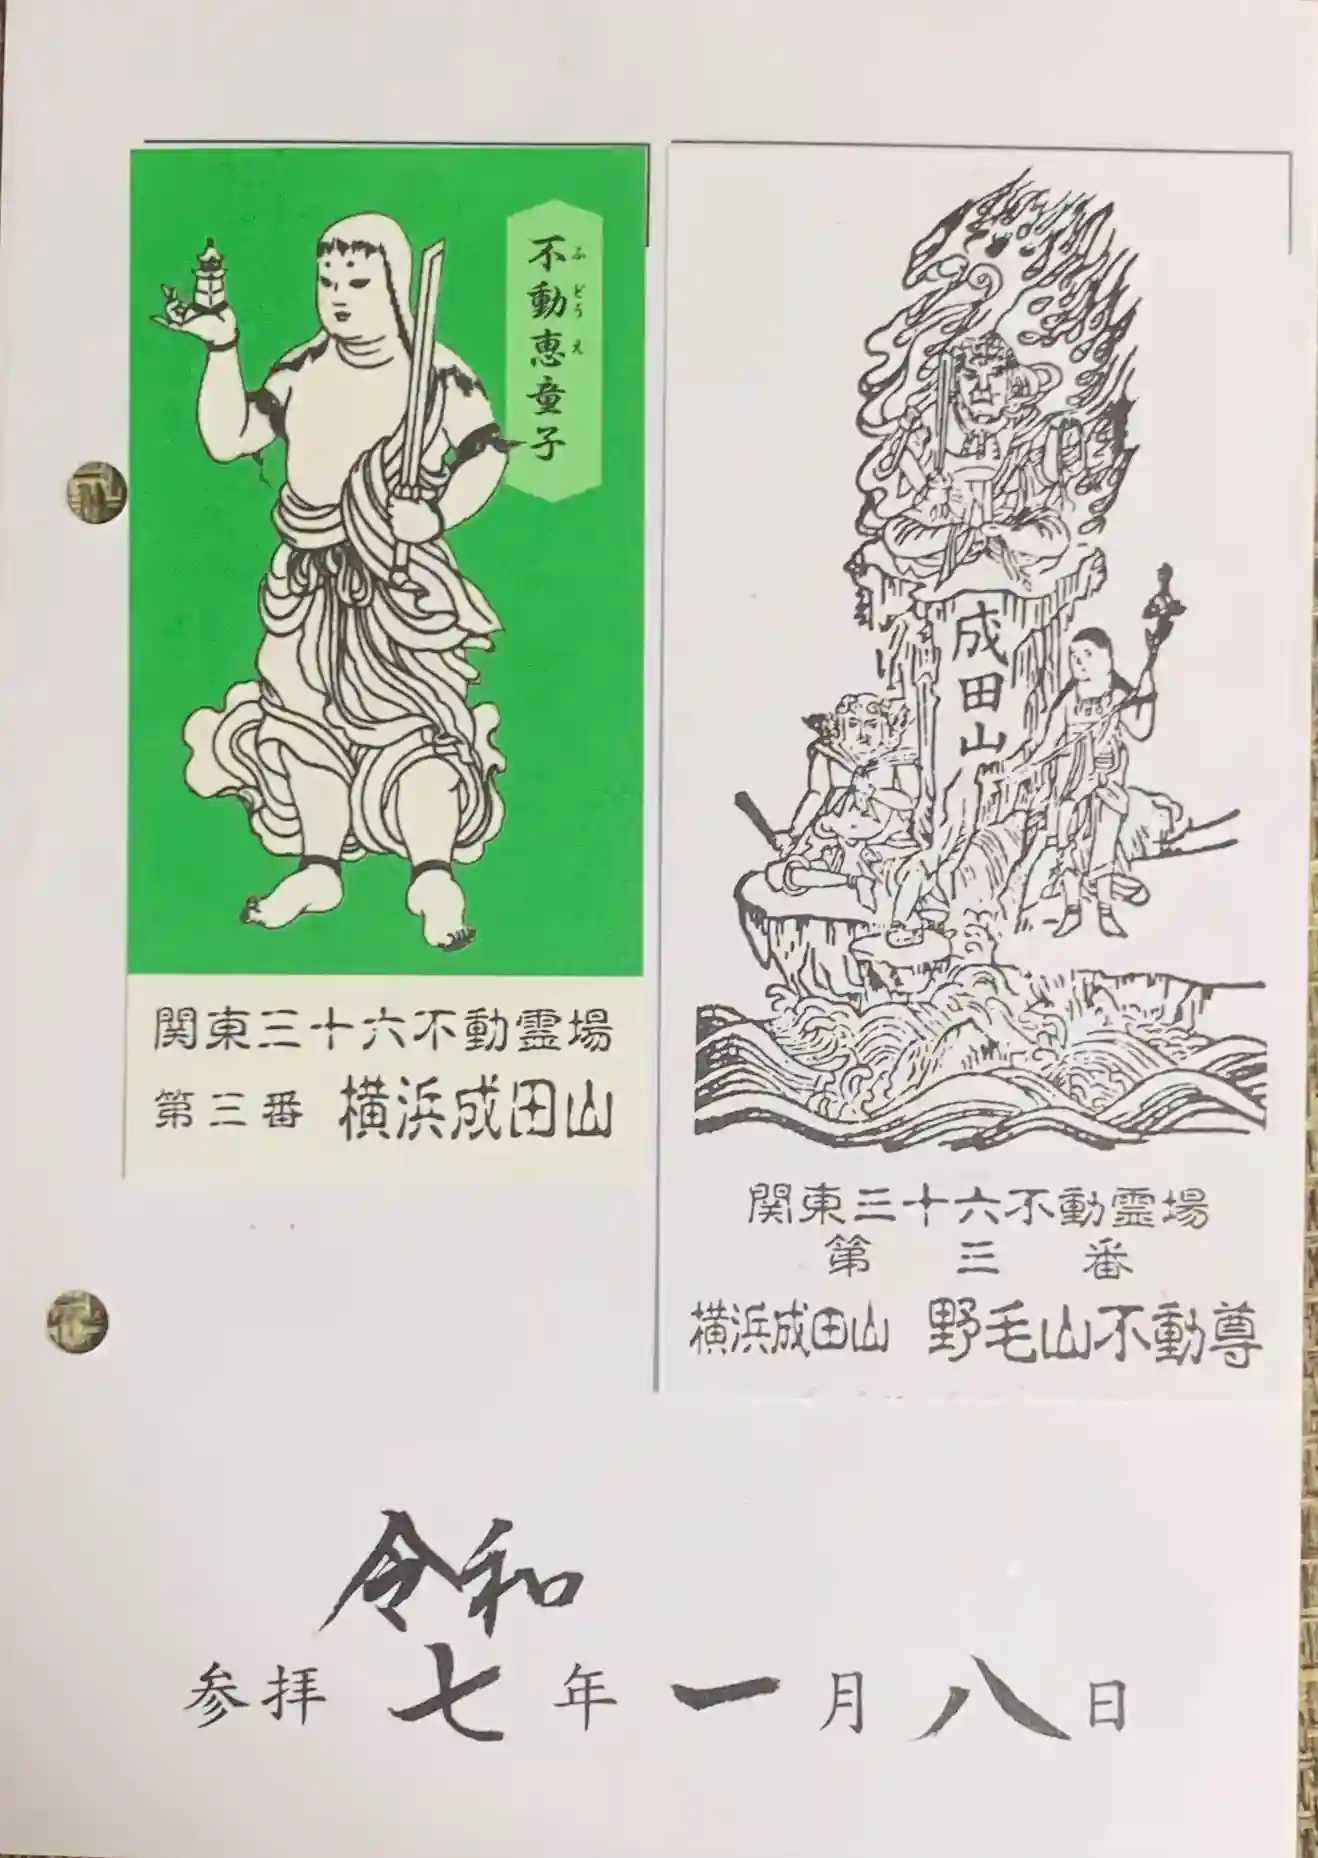 不動惠童子
ふどうえ
関東三十六不動霊場
第三番 横浜成田山
成田山
関東三十六不動霊場
第三番
横浜成田山 野毛山不動尊
令和
参拝 七年一月八日